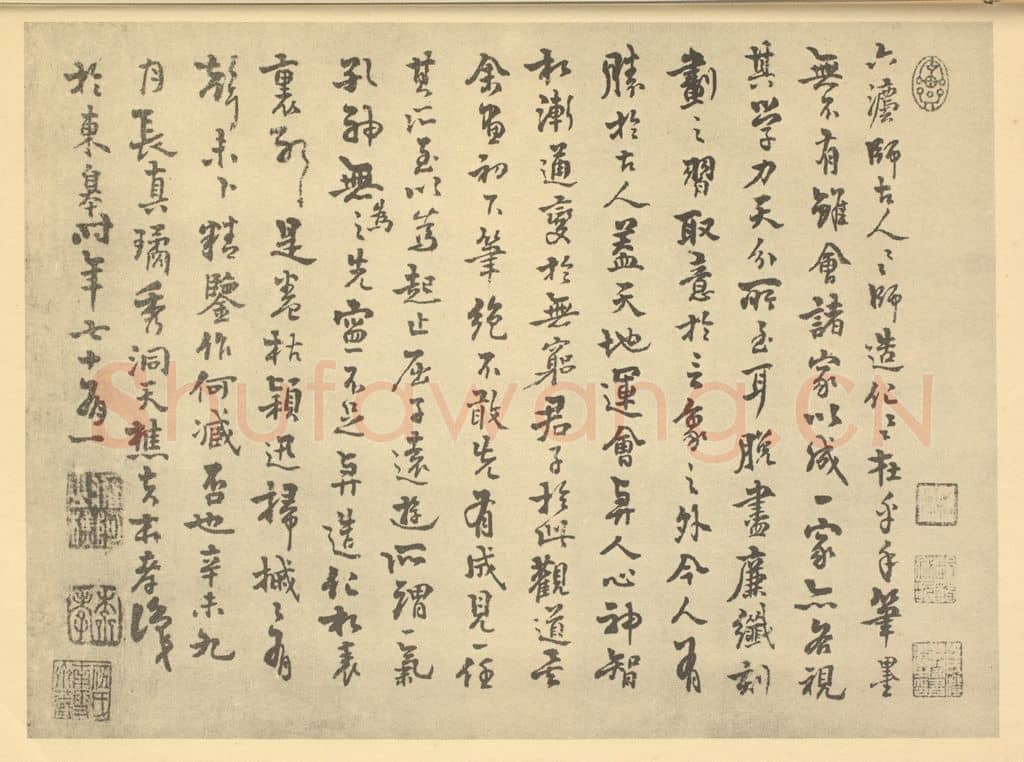 六瀆師古人人師造化造化在乎手筆墨
無不有雖會諸家以成一家亦各視
其學力天分所至耳脫盡廉纖刻
劃之習取意於言象之外今人有
勝於古人蓋天地運會與人心神智
相漸通變於無窮君子於此觀道矣
余畫初下筆絕不敢先有成見一任
其所至以為起止屈子遠遊所謂一氣
孔神無為之先寧不足與造化相表
裏歟是卷枯穎迅掃槭槭有
聲未卜精鑒作何臧否也辛未九
月長真璚秀洞天樵夫本孝識
於東皋時年七十有一
Shufawang.CN